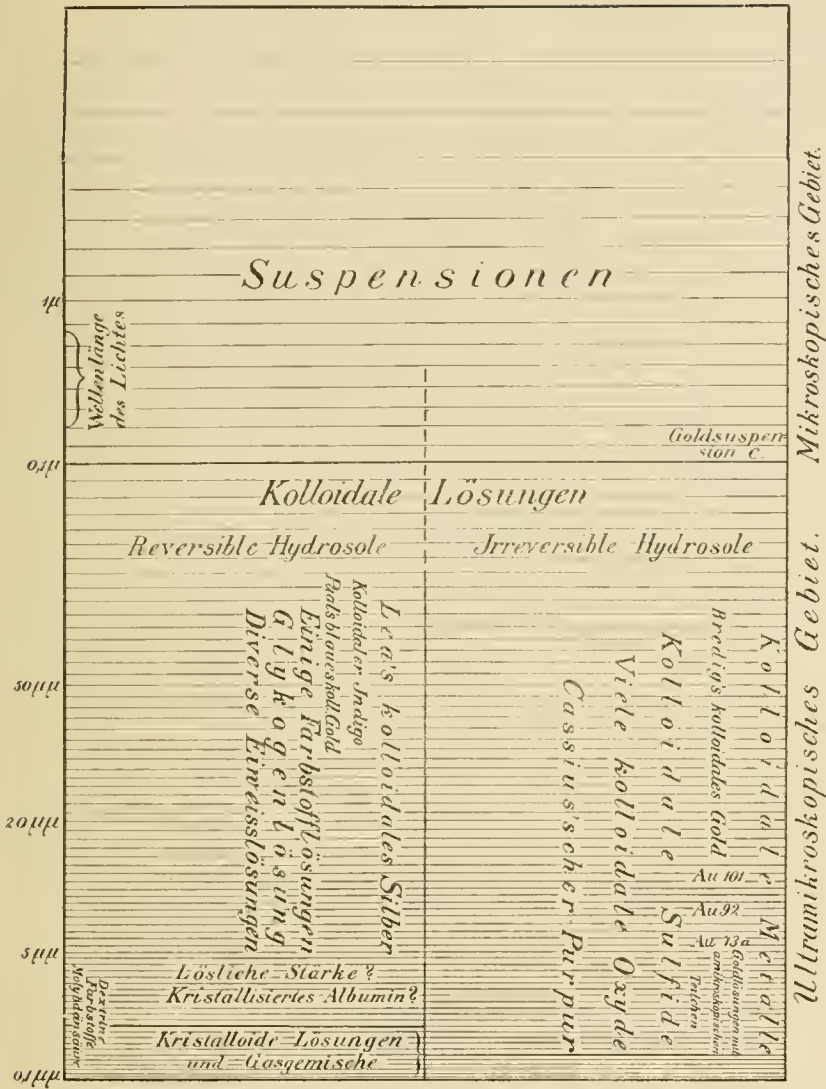 Suspensionen
1μ
Wellenlänge
des Lichtes
0,1μ
Goldsuspen-
sion C.
Kolloidale Lösungen
Reversible Hydrosole
Irreversible Hydrosole
50μμ
20μμ
5μμ
0,1μμ
Diverse Eiweisslösungen
Glykogenlösung
Einige Farbstofflösungen
Paalsblaueskoll.Gold
Kolloidaler Indigo
Lea's kolloidales Silber
Cassius'scher Purpur
Viele kolloidale Oxyde
Kolloidale Sulfide
Bredig's kolloidales Gold
Au 101
Au 92
Au 73a
Goldlösungen mit
amikroskopischen
Teilchen
Kolloidale Metalle
Lösliche Stärke?
Kristallisiertes Albumin?
Dextrine
Farbstoffe
Molybdänsäure
Kristalloide Lösungen
und Gasgemische
Mikroskopisches Gebiet.
Ultramikroskopisches Gebiet.